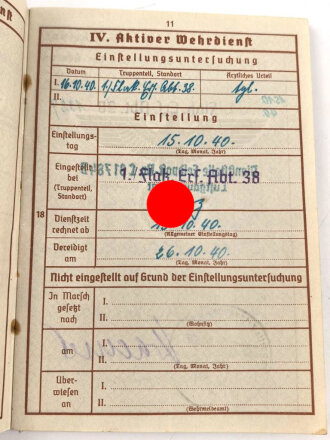 11
IV. Aktiver Wehrdienst
Einstellungsuntersuchung
Datum Truppenteil, Standort Ärztliches Urteil
I. 16.10.40. 1/Flak. Erf. Abt. 38. tgl.
II.
Einstellung
Einstellungs-
tag
15.10.40.
(Tag, Monat, Jahr)
Eingestellt
bei
(Truppenteil,
Standort)
1. Flak Erf. Abt. 38
18
Dienstzeit
rechnet ab
15.10.40.
(Allgemeiner Einstellungstag)
Vereidigt
am
26.10.40.
(Tag, Monat, Jahr)
Nicht eingestellt auf Grund der Einstellungsuntersuchung
In Marsch
gesetzt
nach
I.
II.
(Wohnsitz)
am
I.
II.
(Tag, Monat, Jahr)
Über-
wiesen
an
I.
II.
(Wehrmeldeamt)